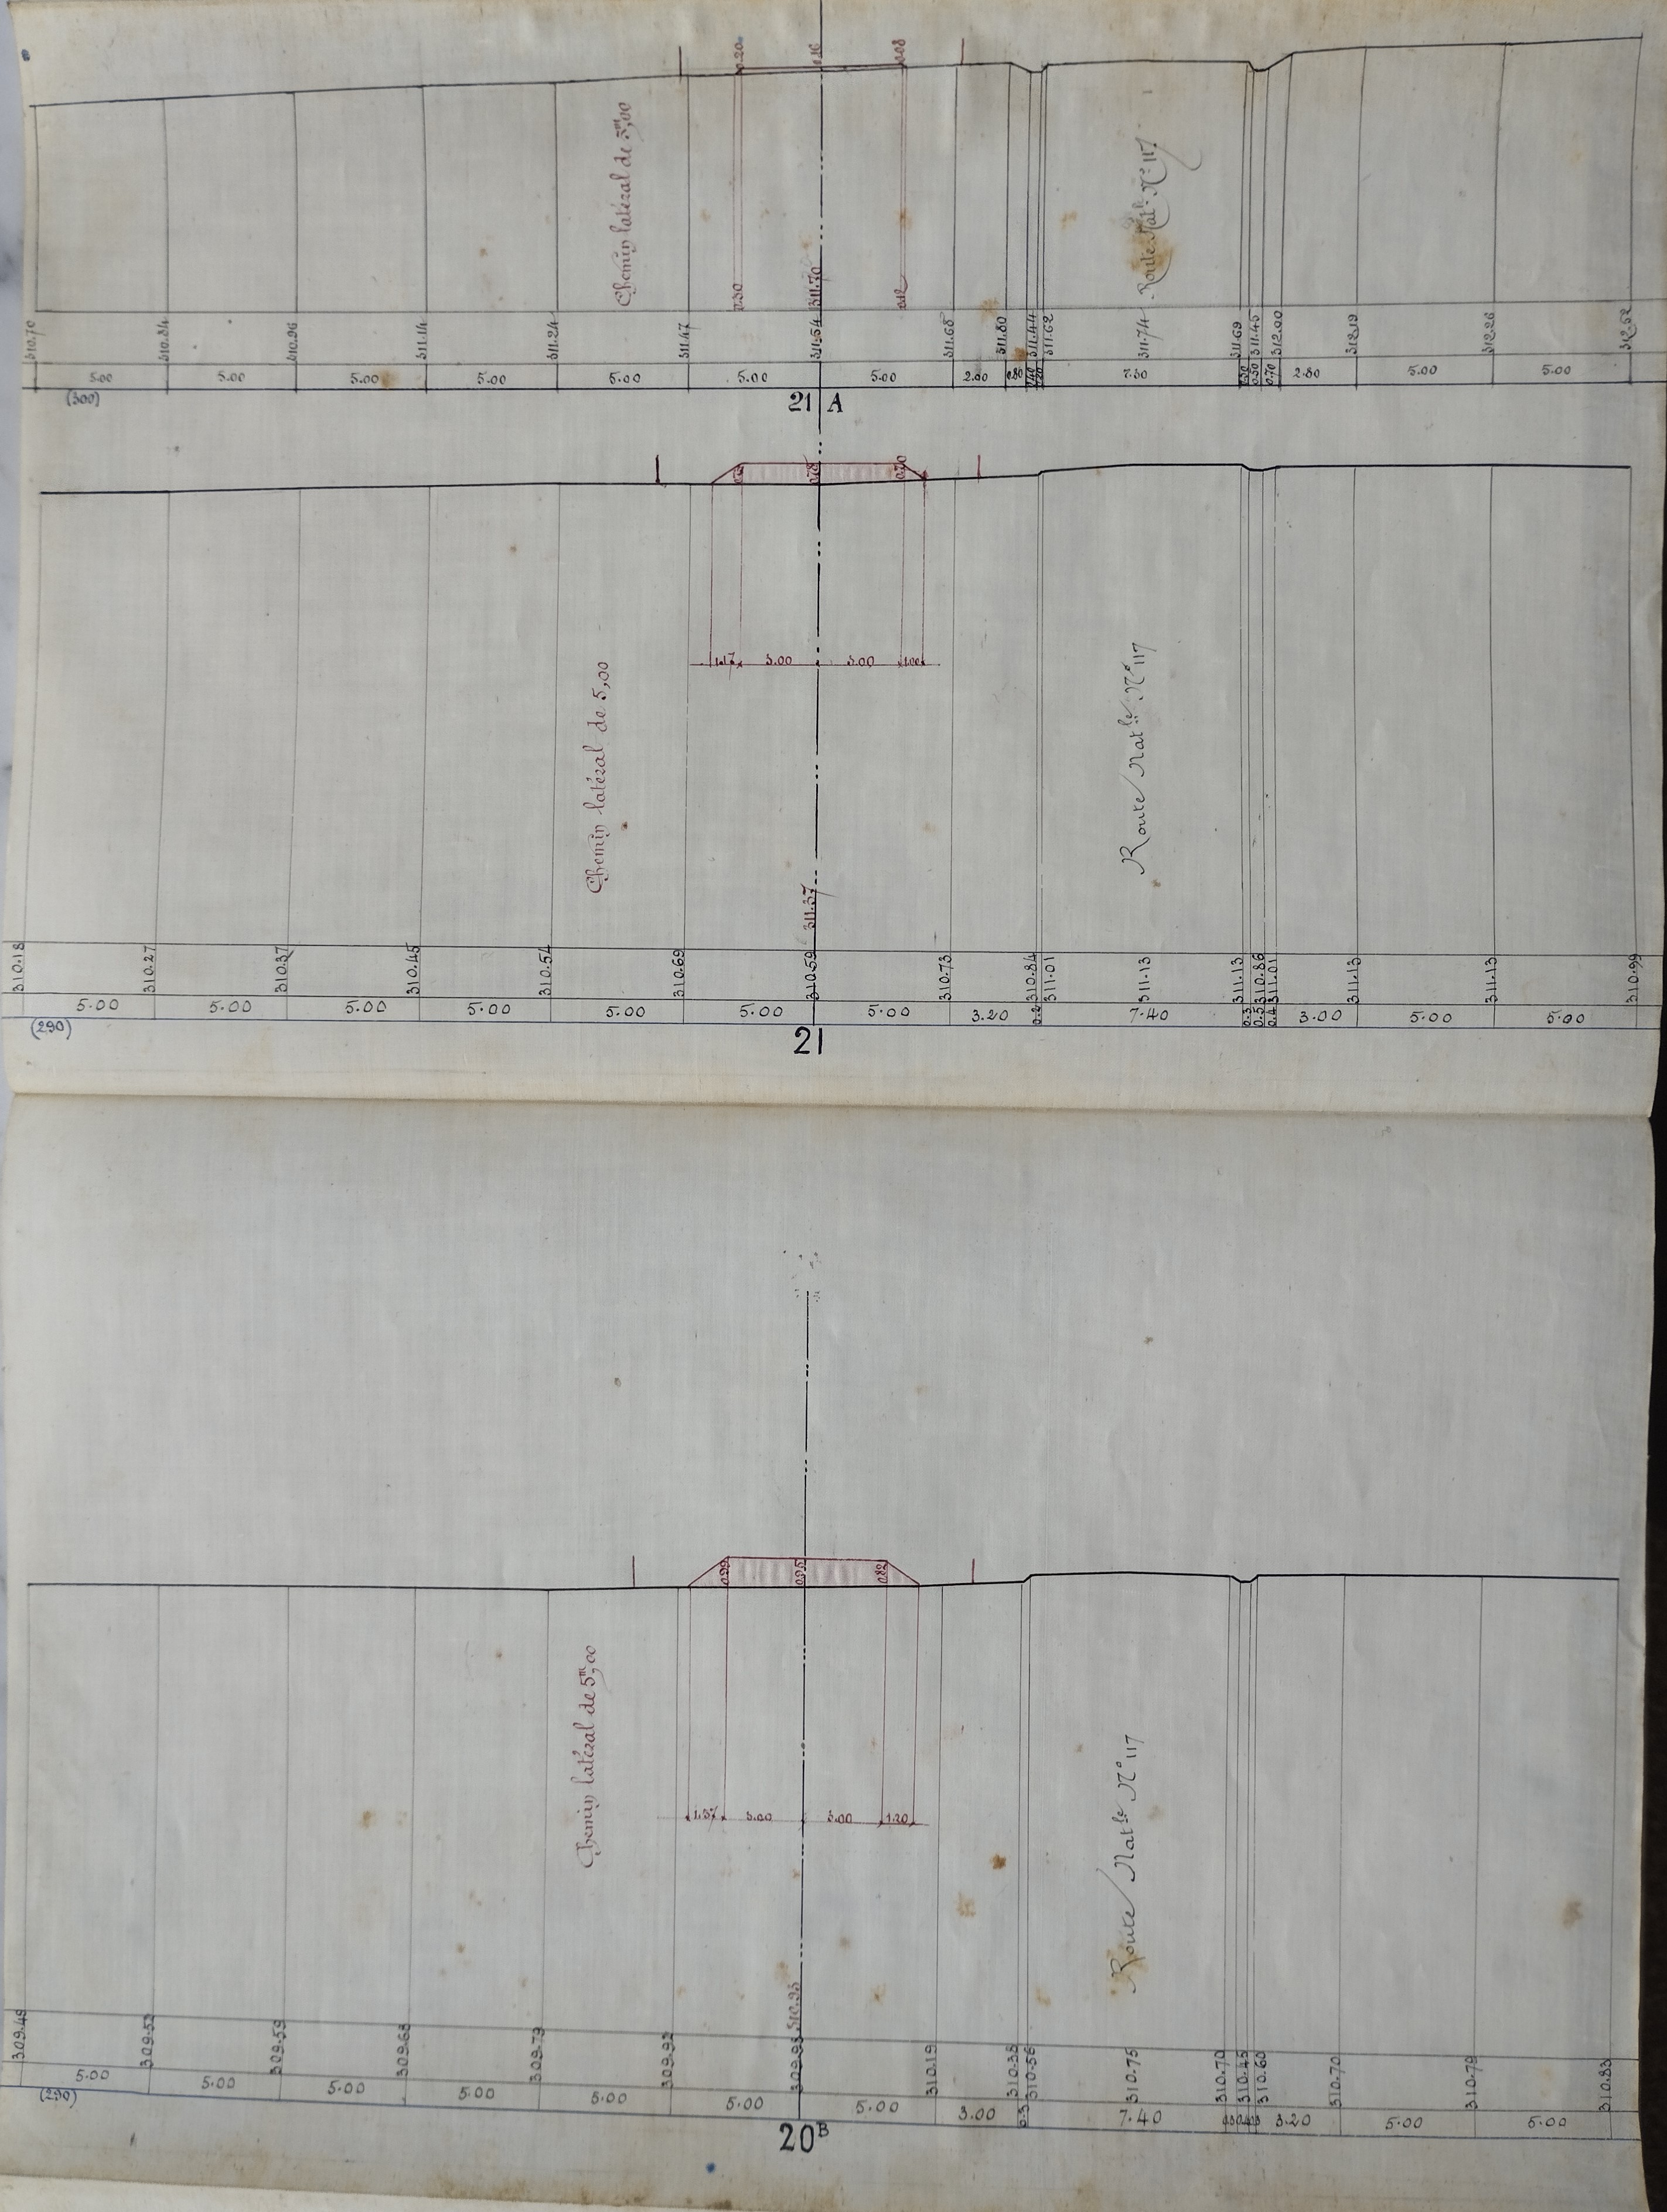 0.20 0.16 0.08
Chemin latéral de 5ᵐ,00
Route Natˡᵉ N° 117
0.30 311.70 0.12
310.70 310.84 310.96 311.14 311.24 311.47 311.54 311.65 311.80 311.44 311.62 311.74 311.69 311.45 312.00 312.19 312.26 312.52
5.00 5.00 5.00 5.00 5.00 5.00 5.00 2.00 0.80 0.40 0.20 7.50 0.30 0.50 0.70 2.80 5.00 5.00
(300)
21 A
0.78 0.78 0.70
1.17 3.00 3.00 1.00
Chemin latéral de 5,00
Route Natˡᵉ N° 117
311.37
310.18 310.27 310.37 310.45 310.54 310.69 310.59 310.73 310.84 311.01 311.13 311.13 310.86 311.01 311.13 311.13 310.99
5.00 5.00 5.00 5.00 5.00 5.00 5.00 3.20 0.2 7.40 0.3 0.5 0.4 3.00 5.00 5.00
(290)
21
0.99 0.95 0.82
1.37 3.00 3.00 1.20
Chemin latéral de 5ᵐ,00
Route Natˡᵉ N° 117
310.93
309.48 309.52 309.59 309.68 309.79 309.92 309.98 310.19 310.38 310.56 310.75 310.70 310.45 310.60 310.70 310.79 310.83
5.00 5.00 5.00 5.00 5.00 5.00 5.00 3.00 0.3 7.40 3.20 5.00 5.00
(290)
20ᴮ